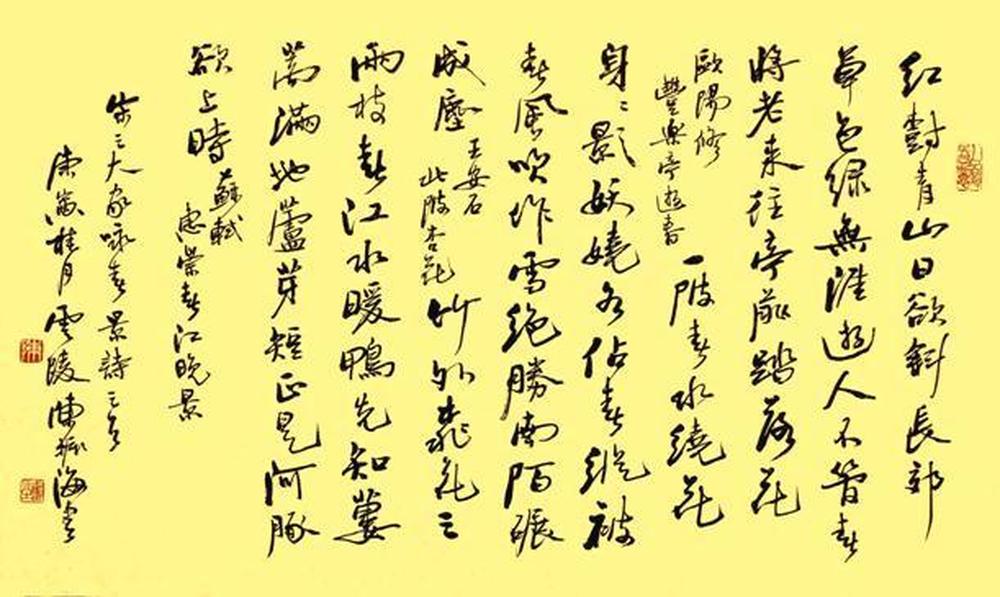 红對青山日欲斜長郊
草色绿無涯遊人不管春
將老來往亭前踏落花
歐陽修
豐樂亭遊春
一陂春水繞花
身〻影妖嬈各佔春縱被
春風吹作雪絶勝南陌碾
成塵
王安石
北陂杏花
竹外桃花三
兩枝春江水暖鴨先知蔞
蒿滿地蘆芽短正是河豚
欲上時
蘇軾
惠崇春江晚景
宋三大家咏春景詩三首
庚寅桂月雲陵陳振海書